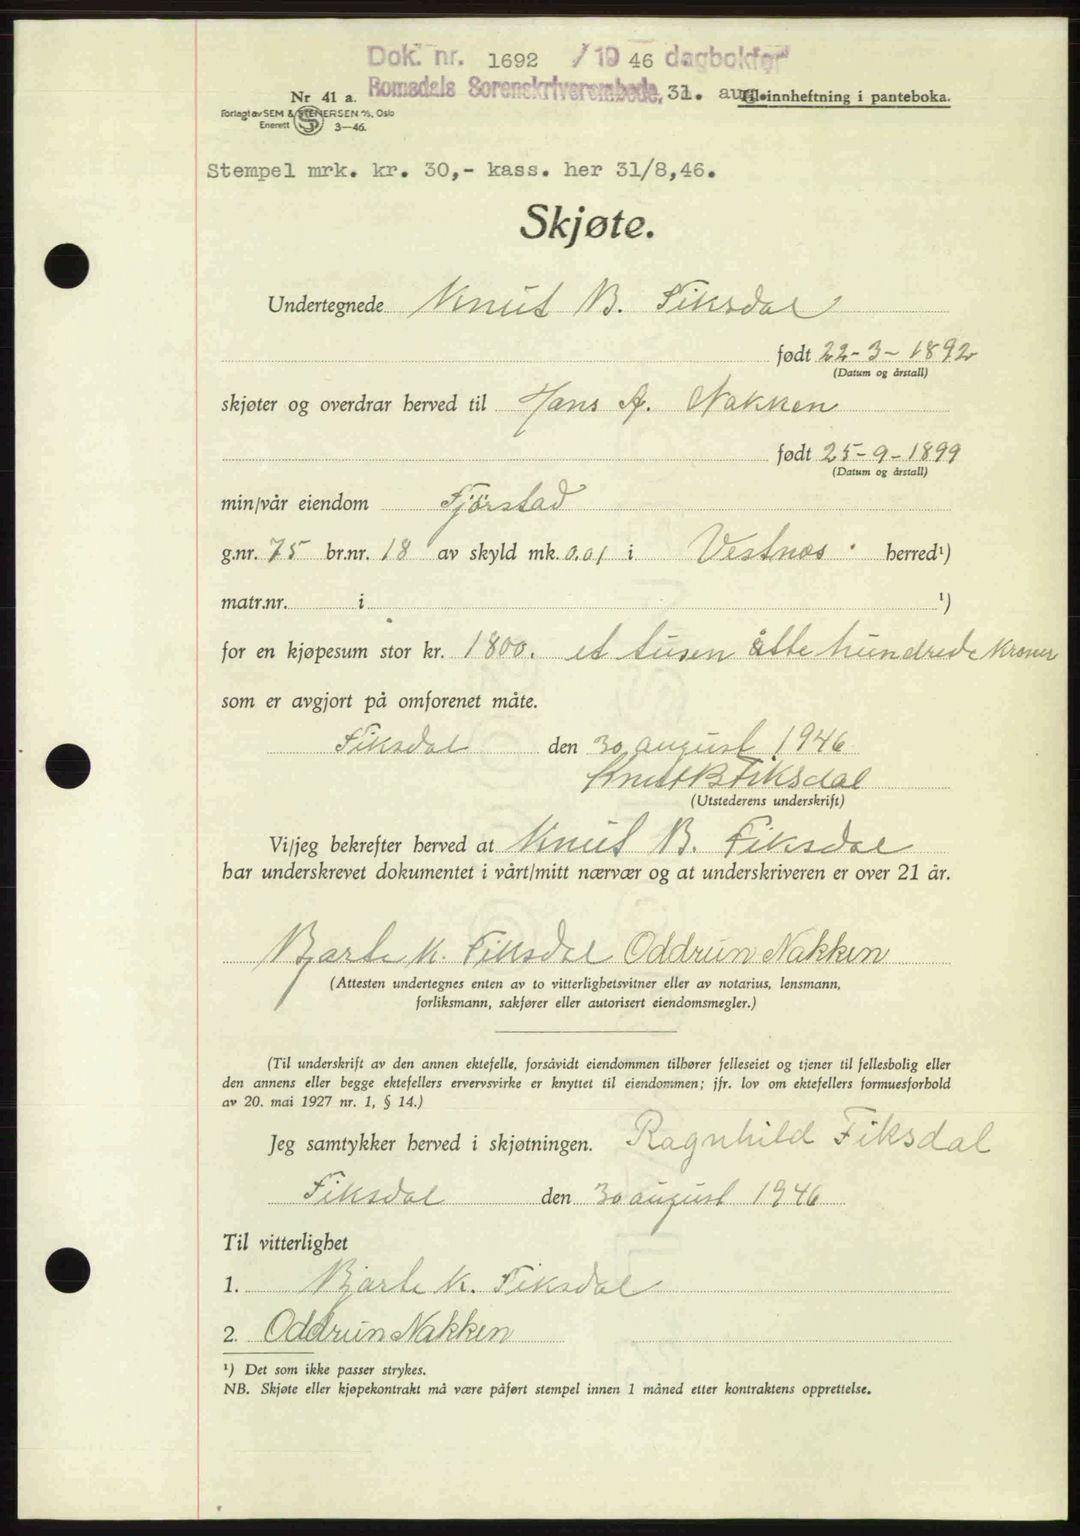 Dok. nr. 1692 /19 46 dagbokført
Romsdals Sorenskriverembede, 31. aug.
Nr 41 a. Til innheftning i panteboka.
Forlagt av SEM & STENERSEN A/S, Oslo
Enerett 3-46.
Stempel mrk. kr. 30,- kass. her 31/8,46.
Skjøte.
Undertegnede Knut B. Fiksdal
født 22-3-1892
(Datum og årstall)
skjøter og overdrar herved til Hans A. Nakken
født 25-9-1899
(Datum og årstall)
min/vår eiendom Fjørstad
g.nr. 75 br.nr. 18 av skyld mk. 0.01 i Vestnes herred¹)
matr.nr. i ¹)
for en kjøpesum stor kr. 1800. et tusen åtte hundrede kroner
som er avgjort på omforenet måte.
Fiksdal den 30 august 1946
Knut B Fiksdal
(Utstederens underskrift)
Vi/jeg bekrefter herved at Knut B. Fiksdal
har underskrevet dokumentet i vårt/mitt nærvær og at underskriveren er over 21 år.
Bjarte K. Fiksdal Oddrun Nakken
(Attesten undertegnes enten av to vitterlighetsvitner eller av notarius, lensmann,
forliksmann, sakfører eller autorisert eiendomsmegler.)
(Til underskrift av den annen ektefelle, forsåvidt eiendommen tilhører felleseiet og tjener til fellesbolig eller
den annens eller begge ektefellers ervervsvirke er knyttet til eiendommen; jfr. lov om ektefellers formuesforhold
av 20. mai 1927 nr. 1, § 14.)
Jeg samtykker herved i skjøtningen. Ragnhild Fiksdal
Fiksdal den 30 august 1946
Til vitterlighet
1. Bjarte K. Fiksdal
2. Oddrun Nakken
¹) Det som ikke passer strykes.
NB. Skjøte eller kjøpekontrakt må være påført stempel innen 1 måned etter kontraktens opprettelse.